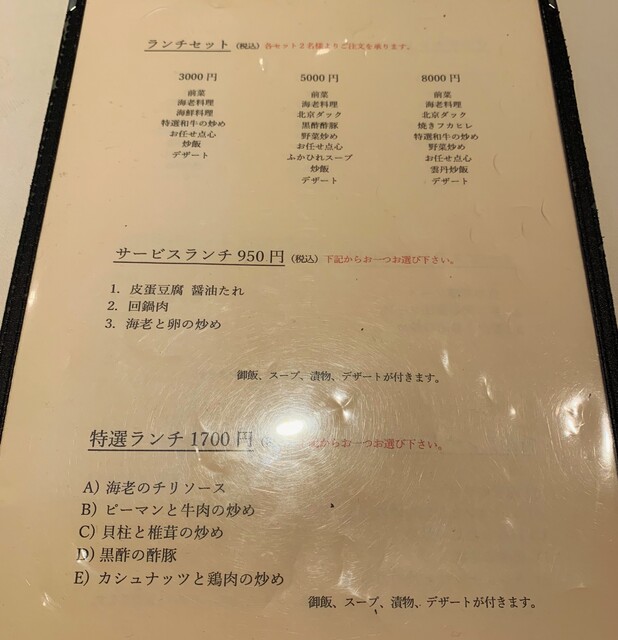 ランチセット (税込) 各セット2名様よりご注文を承ります。
3000 円
前菜
海老料理
海鮮料理
特選和牛の炒め
お任せ点心
炒飯
デザート
5000 円
前菜
海老料理
北京ダック
黒酢酢豚
野菜炒め
お任せ点心
ふかひれスープ
炒飯
デザート
8000 円
前菜
海老料理
北京ダック
焼きフカヒレ
特選和牛の炒め
野菜炒め
お任せ点心
雲丹炒飯
デザート
サービスランチ 950 円 (税込) 下記からお一つお選び下さい。
1. 皮蛋豆腐 醤油たれ
2. 回鍋肉
3. 海老と卵の炒め
御飯、スープ、漬物、デザートが付きます。
特選ランチ 1700 円 記からお一つお選び下さい。
A) 海老のチリソース
B) ピーマンと牛肉の炒め
C) 貝柱と椎茸の炒め
D) 黒酢の酢豚
E) カシュナッツと鶏肉の炒め
御飯、スープ、漬物、デザートが付きます。